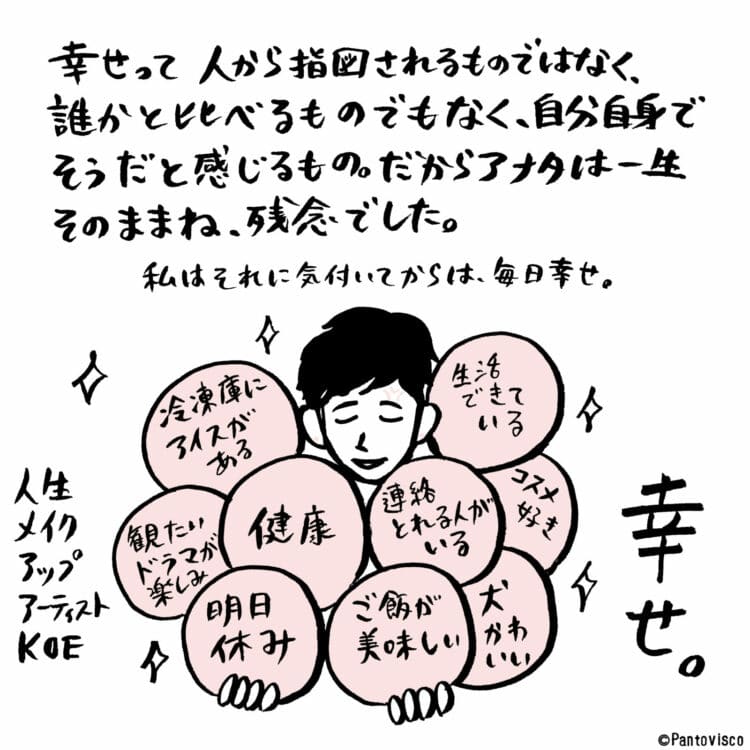 幸せって 人から指図されるものではなく、
誰かと比べるものでもなく、自分自身で
そうだと感じるもの。だからアナタは一生
そのままね、残念でした。
私はそれに気付いてからは、毎日幸せ。
冷凍庫に
アイスが
ある
生活
できて
いる
観たい
ドラマが
楽しみ
健康
連絡
とれる人が
いる
コスメ
好き
明日
休み
ご飯が
美味しい
犬
かわ
いい
人生
メイク
アップ
アーティスト
KOE
幸せ。
©Pantovisco